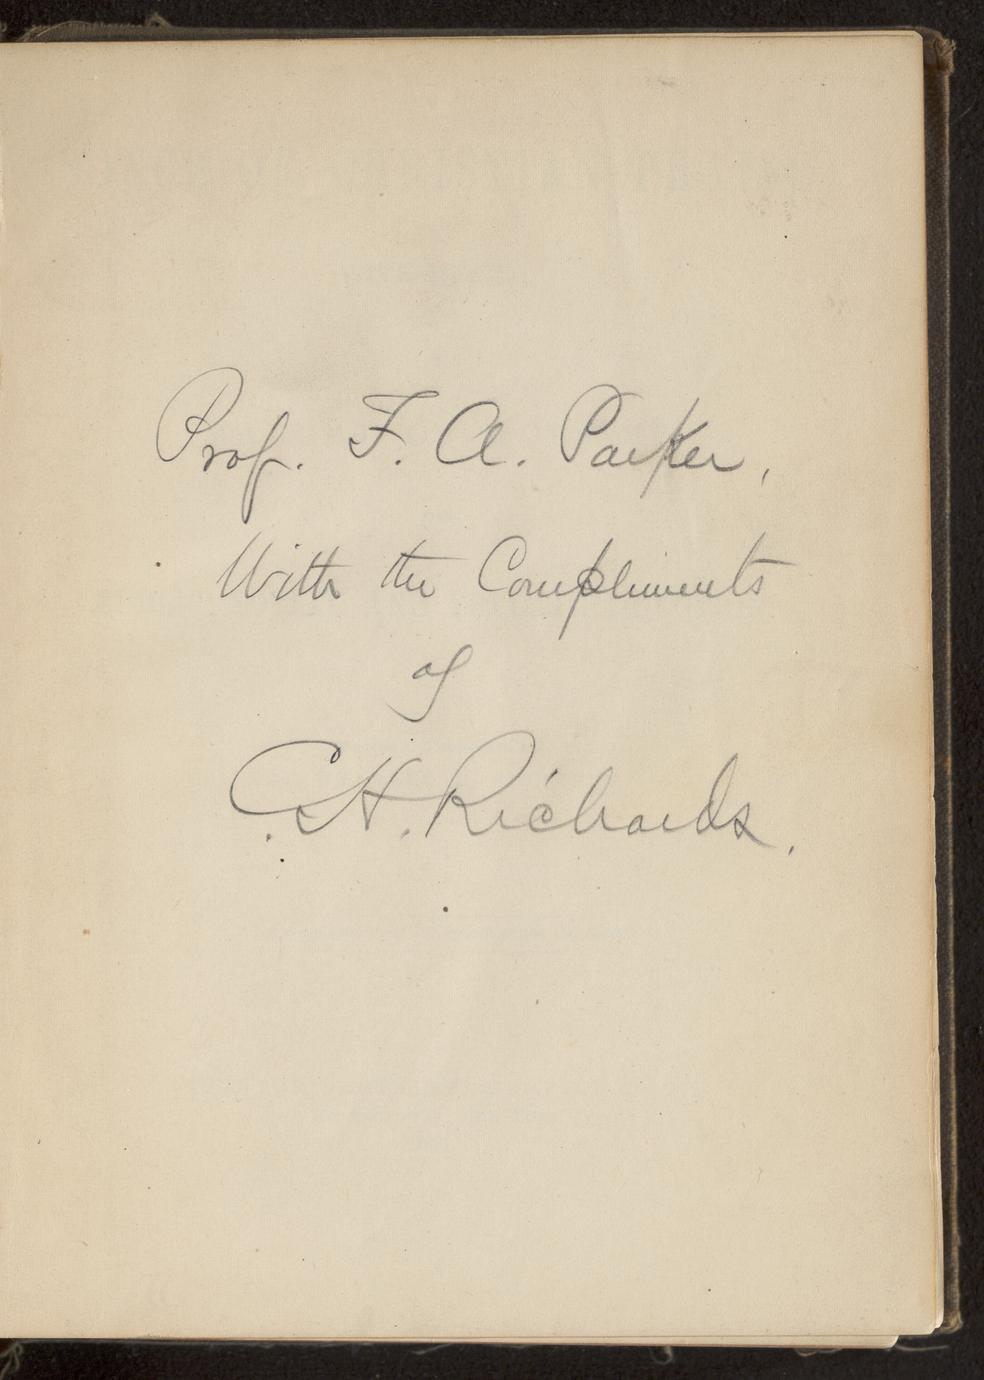 Prof. F. A. Parker,
With the Compliments
of
C. H. Richards.